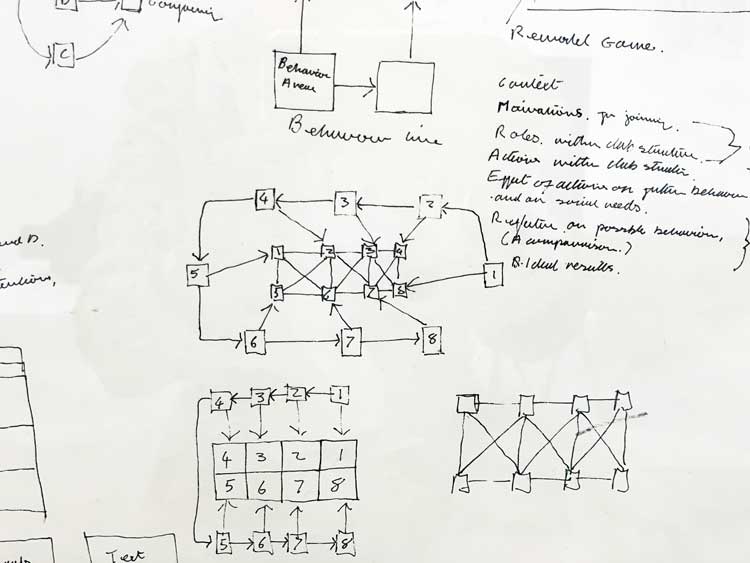 C
Remodel Game.
Behavior
Areas
Behaviour line
Context
Motivations for joining.
Roles within club structure.
Actions within club structure.
Effect of actions on future behavior
and on social needs.
Reflection on possible behaviors,
(A comparison.)
B. Ideal results.
4 3 2
1 2 3 4
5 1
5 6 7 8
6 7 8
4 3 2 1
4 3 2 1
5 6 7 8
5 6 7 8
Text